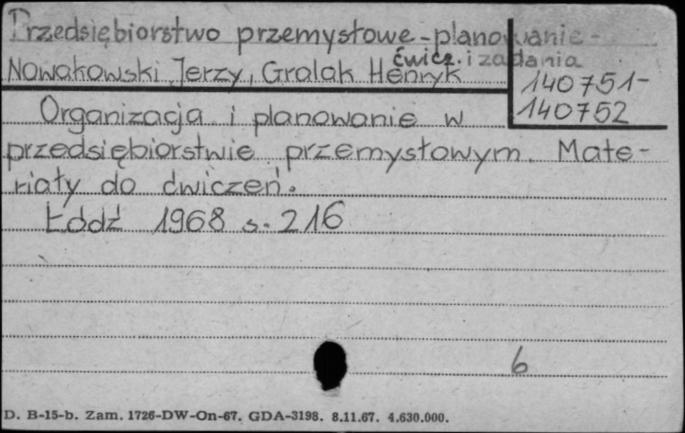 Przedsiębiorstwo przemysłowe-planowanie-
ćwicz. i zadania
Nowakowski Jerzy, Gralak Henryk
140751-
140752
Organizacja i planowanie w
przedsiębiorstwie przemysłowym. Mate-
riały do ćwiczeń.
Łódź 1968 s. 216
6
D. B-15-b. Zam. 1726-DW-On-67. GDA-3198. 8.11.67. 4.630.000.